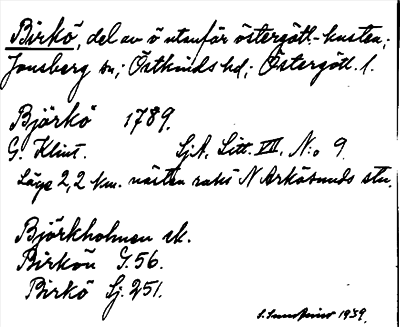 Birkö, del av ö utanför östergötl.-kusten;
Jonsberg sn; Östkinds hd; Östergötl. l.
Björkö 1789.
G. Klint. SjA. Litt. VIII. N:o 9.
Läge 2,2 km. nästan rakt N Arkösunds stn.
Björkholmen ek.
Birkön G.56.
Birkö Sj.251.
1939.